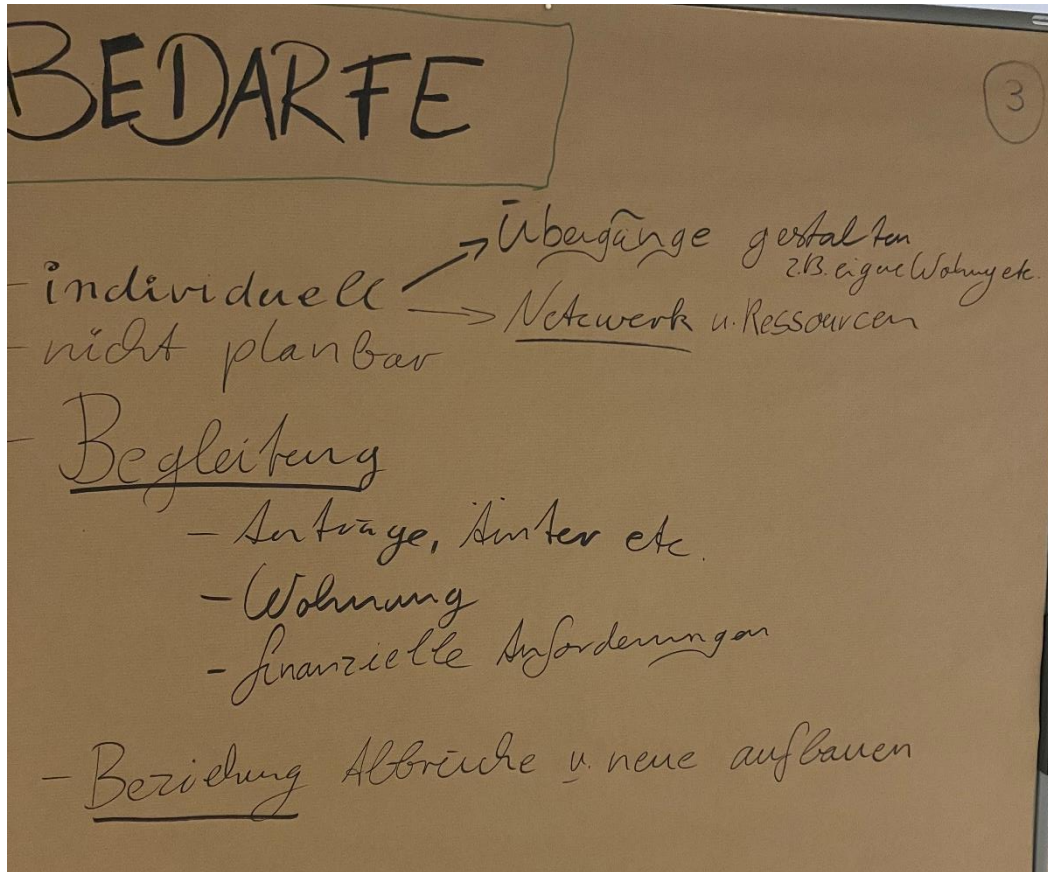 BEDARFE
3
- individuell → Übergänge gestalten
z.B. eigene Wohnung etc.
→ Netzwerk u. Ressourcen
- nicht planbar
- Begleitung
- Anträge, Ämter etc.
- Wohnung
- finanzielle Anforderungen
- Beziehung Abbrüche u. neue aufbauen